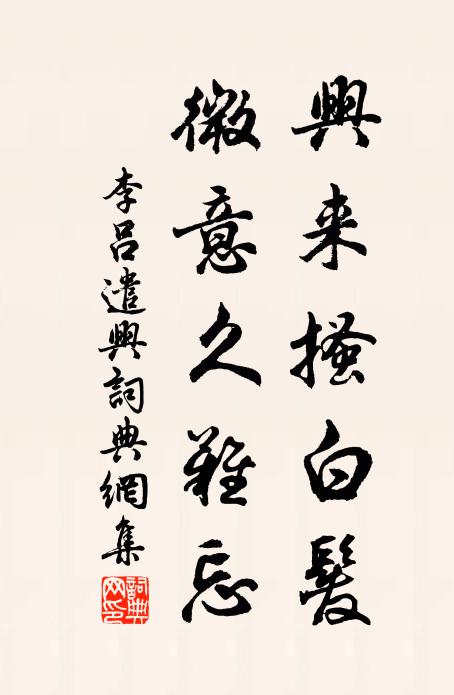 興来搔白髮
微意久難忘
李呂遣興詞典網集
詞典網印